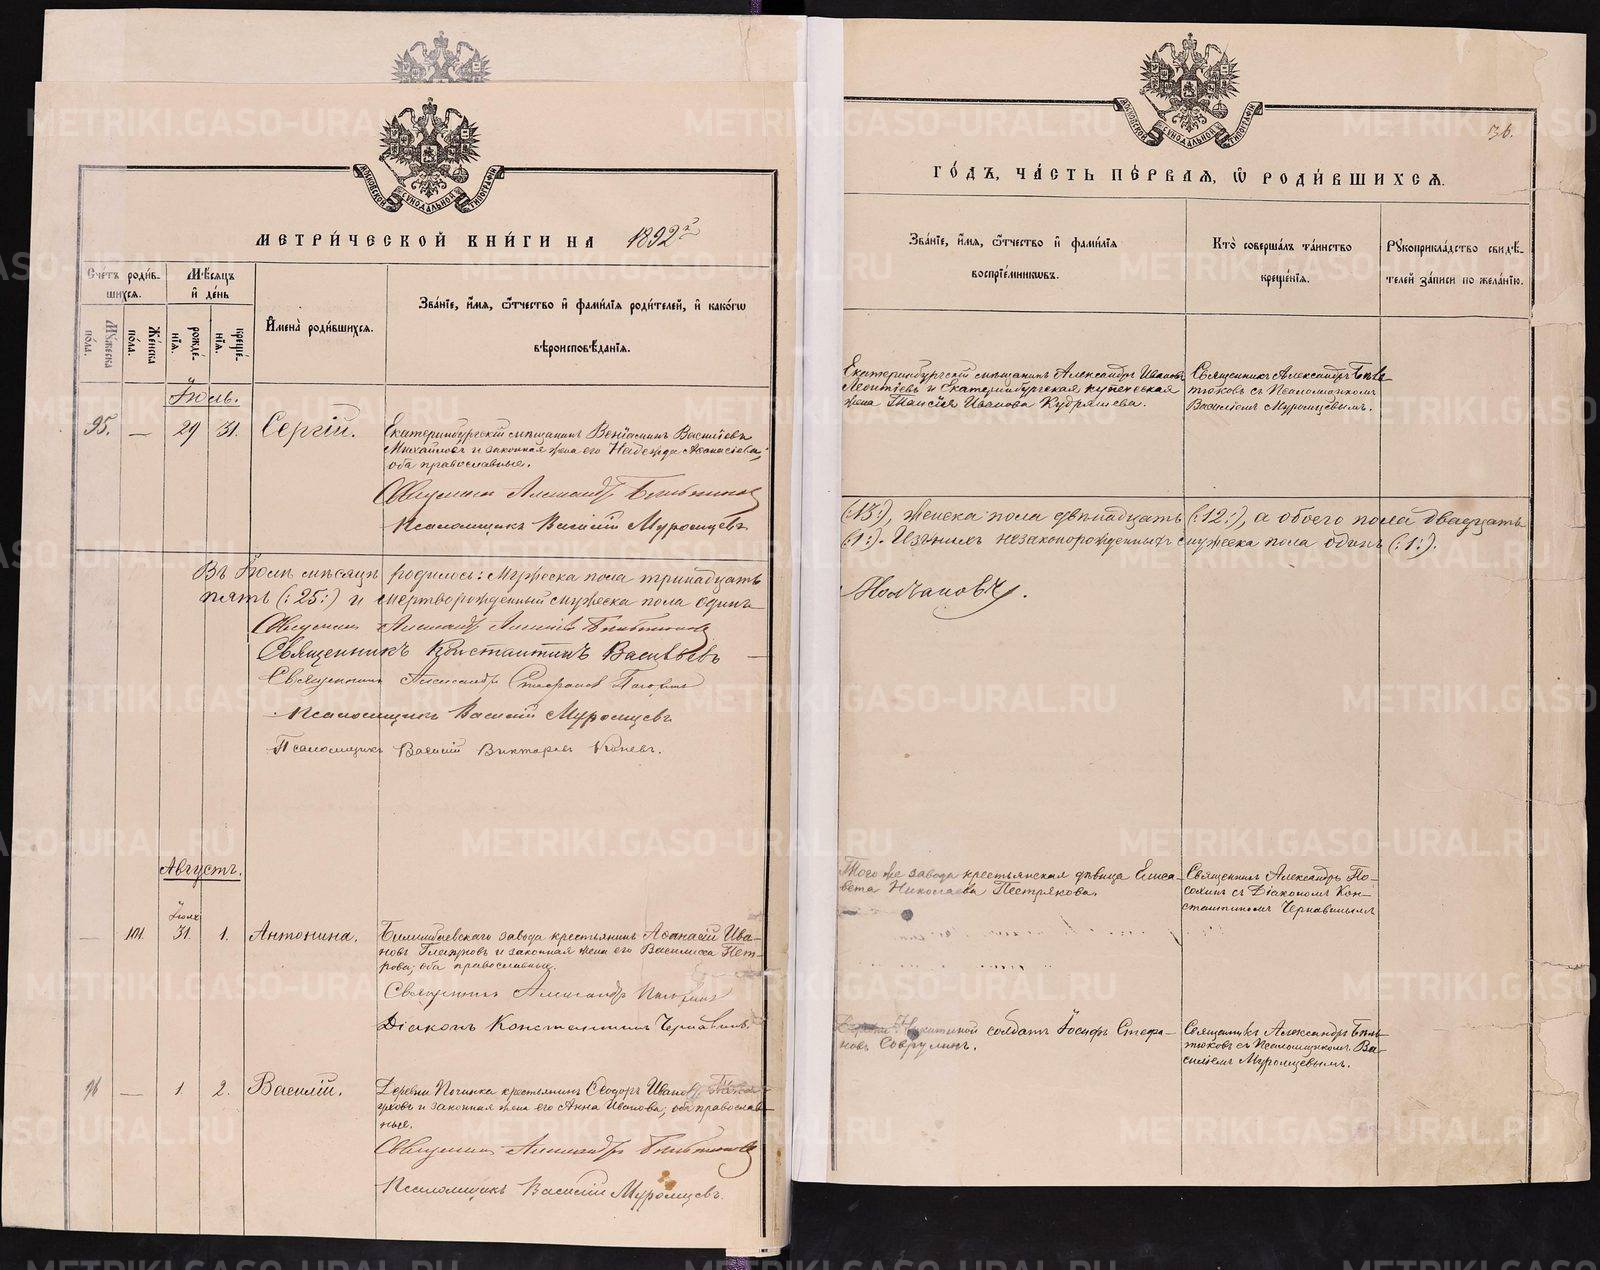 МЕТРИ́ЧЕСКОЙ КНИ́ГИ НА 1892 г
Сче́тъ роди́в-
шихся.
Му́жеска
по́ла.
Же́нска
по́ла.
Мѣ́сяцъ
и҆ де́нь
рожде́-
нїя.
креще́-
нїя.
И҆мена̀ роди́вшихся.
Зва́нїе, и҆́мя, ѻ҆́тчество и҆ фами́лїя роди́телей, и҆ како́гѡ
вѣроисповѣ́данїя.
Іюль.
95. — 29 31. Сергій.
Екатеринбургскій мѣщанинъ Веніаминъ Васильевъ
Михайловъ и законная жена его Надежда Аѳанасіева;
оба православные.
Священникъ Александръ
Псаломщикъ Василій Муромцевъ
Въ Іюлѣ мѣсяцѣ родилось: Мужеска пола тринадцать
пять (:25:) и мертворожденный мужеска пола одинъ
Священникъ Александръ
Священникъ Константинъ Васильевъ
Священникъ Александръ
Псаломщикъ Василій Муромцевъ
Псаломщикъ Василій Викторовъ Коневъ.
Августъ.
Іюля
— 101. 31. 1. Антонина.
Билимбаевскаго завода крестьянинъ Аѳанасій Ива-
новъ и законная жена его Василисса Пет-
рова; оба православные.
Священникъ Александръ
Діаконъ Константинъ Чернавинъ.
96 — 1. 2. Василій.
Деревни Починка крестьянинъ Ѳеодоръ Иванов
и законная жена его Анна Иванова; оба православ-
ные.
Священникъ Александръ
Псаломщикъ Василій Муромцевъ.
МОСКОВСКОЙ СѴНОДАЛЬНОЙ ТИПОГРАФІИ
36.
ГО́ДЪ, ЧА́СТЬ ПЕ́РВАЯ, Ѡ҆ РОДИ́ВШИХСЯ.
Зва́нїе, и҆́мя, ѻ҆́тчество и҆ фами́лїя
воспрїе́мникѡвъ.
Кто̀ соверша́лъ та́инство
креще́нїя.
Рꙋкоприкла́дство свидѣ́-
телей за́писи по жела́нїю.
Екатеринбургскій мѣщанинъ Александръ Ивановъ
Леонтіевъ и Екатеринбургская купеческая
жена Таисія Иванова Кудряшева.
Священникъ Александръ Бѣль-
тюковъ съ Псаломщикомъ
Василіемъ Муромцевымъ.
(:13:), женска пола двѣнадцать (:12:), а обоего пола двадцать
(:1:). Изъ нихъ незаконорожденныхъ мужеска пола одинъ (:1:).
Молчановъ.
Того же завода крестьянская дѣвица Елиса-
вета Николаева Пестрякова.
Священникъ Александръ По-
съ Діакономъ Кон-
стантиномъ Чернавинымъ
Никитиной солдатъ Іосифъ Стефа-
новъ Соврулинъ.
Священникъ Александръ Бѣль-
тюковъ съ Псаломщикомъ Ва-
силіемъ Муромцевымъ.
МОСКОВСКОЙ СѴНОДАЛЬНОЙ ТИПОГРАФІИ
METRIKI.GASO-URAL.RU